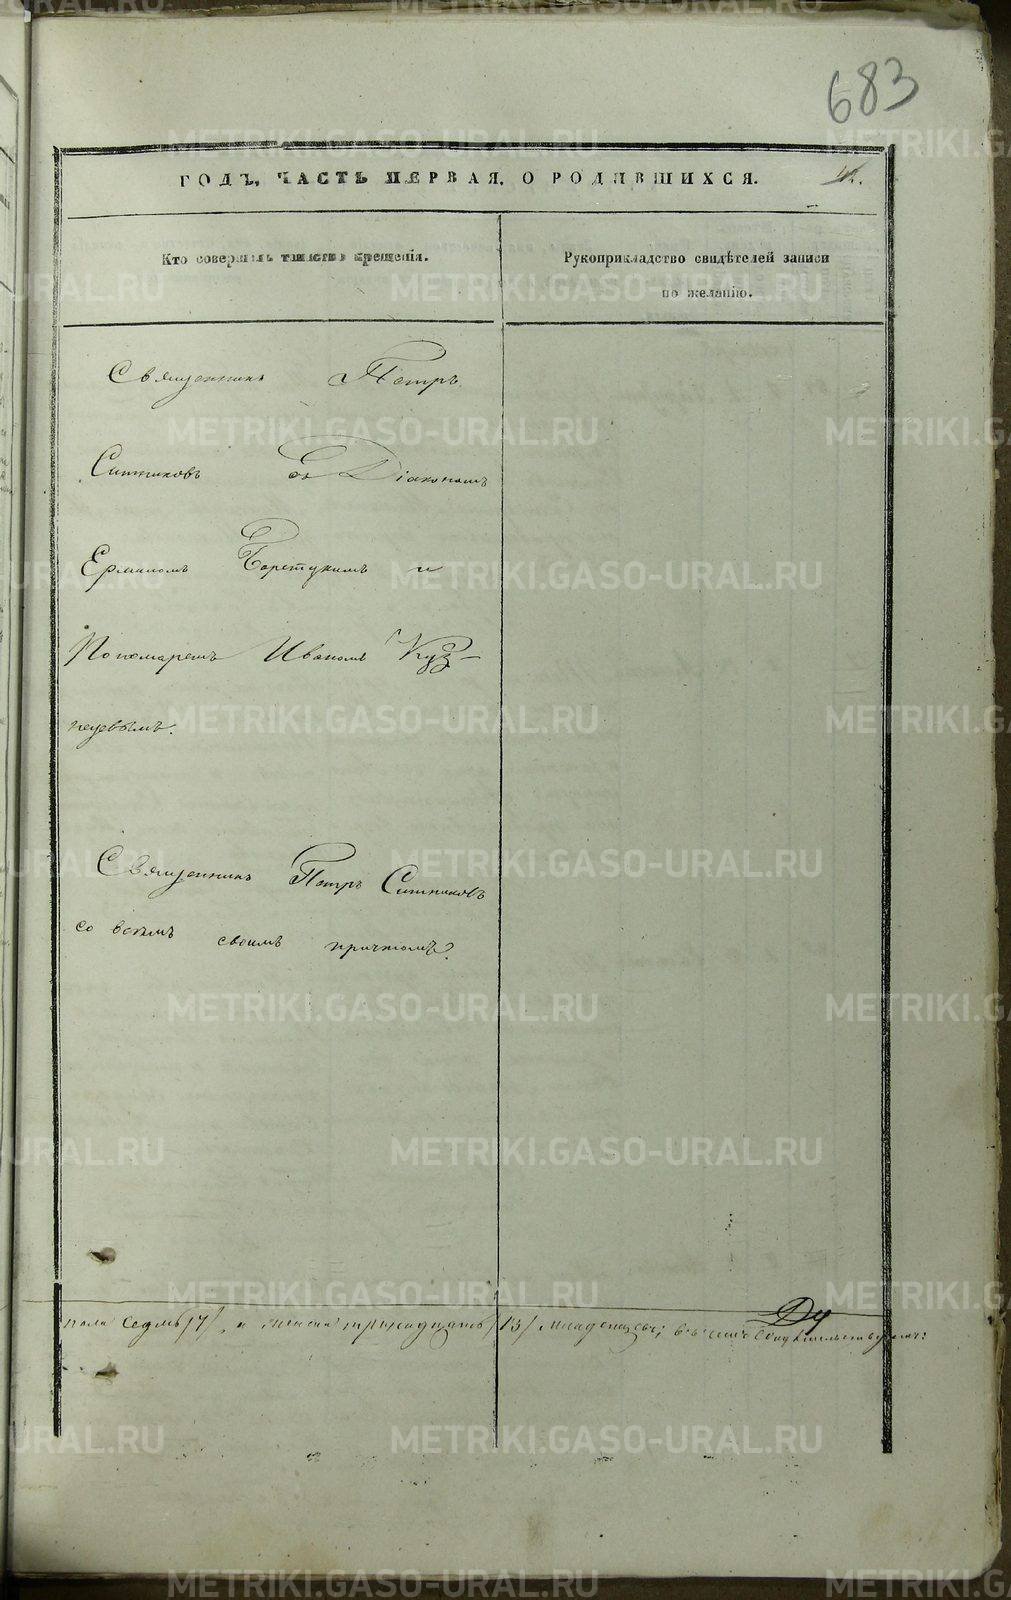 683
ГОДЪ, ЧАСТЬ ПЕРВАЯ, О РОДИВШИХСЯ.
Кто совершалъ таинство крещенія.
Рукоприкладство свидѣтелей записи
по желанію.
Священникъ Петръ
Ситниковъ съ Діакономъ
Ермиломъ Борецкимъ и
Пономаремъ Иваномъ Куз-
нецевымъ.
Священникъ Петръ Ситниковъ
со всѣмъ своимъ причтомъ.
пола седмь /7/, и женска тринадцать /13/ младенцевъ; въ чемъ свидѣтельствуемъ:
METRIKI.GASO-URAL.RU